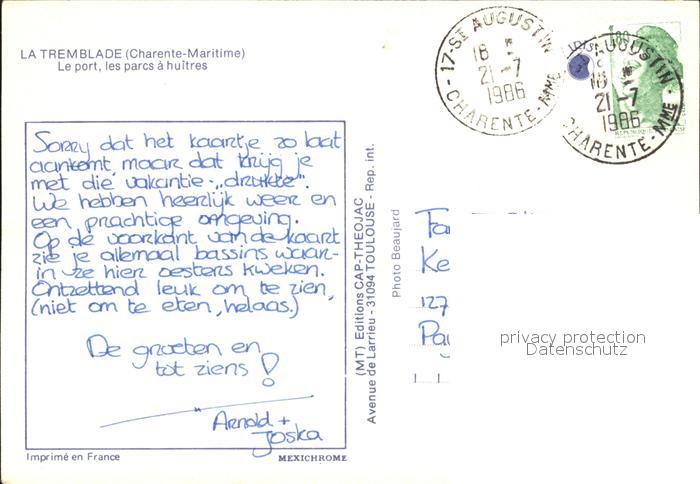 LA TREMBLADE (Charente-Maritime)
Le port, les parcs à huîtres
Sorry dat het kaartje zo laat
aankomt, maar dat krijg je
met die vakantie-„drukte”.
We hebben heerlijk weer en
een prachtige omgeving.
Op de voorkant van de kaart
zie je allemaal bassins waar-
in ze hier oesters kweken.
Ontzettend leuk om te zien,
(niet om te eten, helaas.)
De groeten en
tot ziens!
Arnold +
Joska
Imprimé en France
MEXICHROME
(MT) Editions CAP-THEOJAC
Avenue de Larrieu - 31094 TOULOUSE - Rep. int.
Photo Beaujard
17-ST AUGUSTIN
18 H
21-7
1986
CHARENTE-MME
1,80
AUGUSTIN
18 H
21-7
1986
CHARENTE-MME
Fa
Ke
127
Pa
privacy protection
Datenschutz